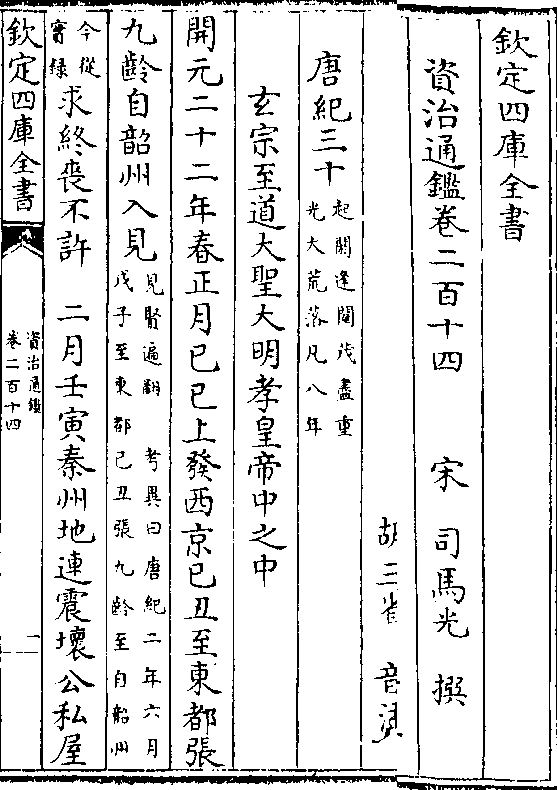 欽定四庫全書
資治通鑑卷二百十四　宋　司馬光　撰
胡三省　音注
唐紀三十起閼逢閹茂盡重
光大荒落凡八年
玄宗至道大聖大明孝皇帝中之中
開元二十二年春正月己巳上發西京己丑至東都張
九齡自韶州入見見賢遍翻　考異曰唐紀二年六月
戊子至東都己丑張九齡至自韶州
今從
實錄求終喪不許　二月壬寅秦州地連震壞公私屋
欽定四庫全書
資治通鑑
卷二百十四
一